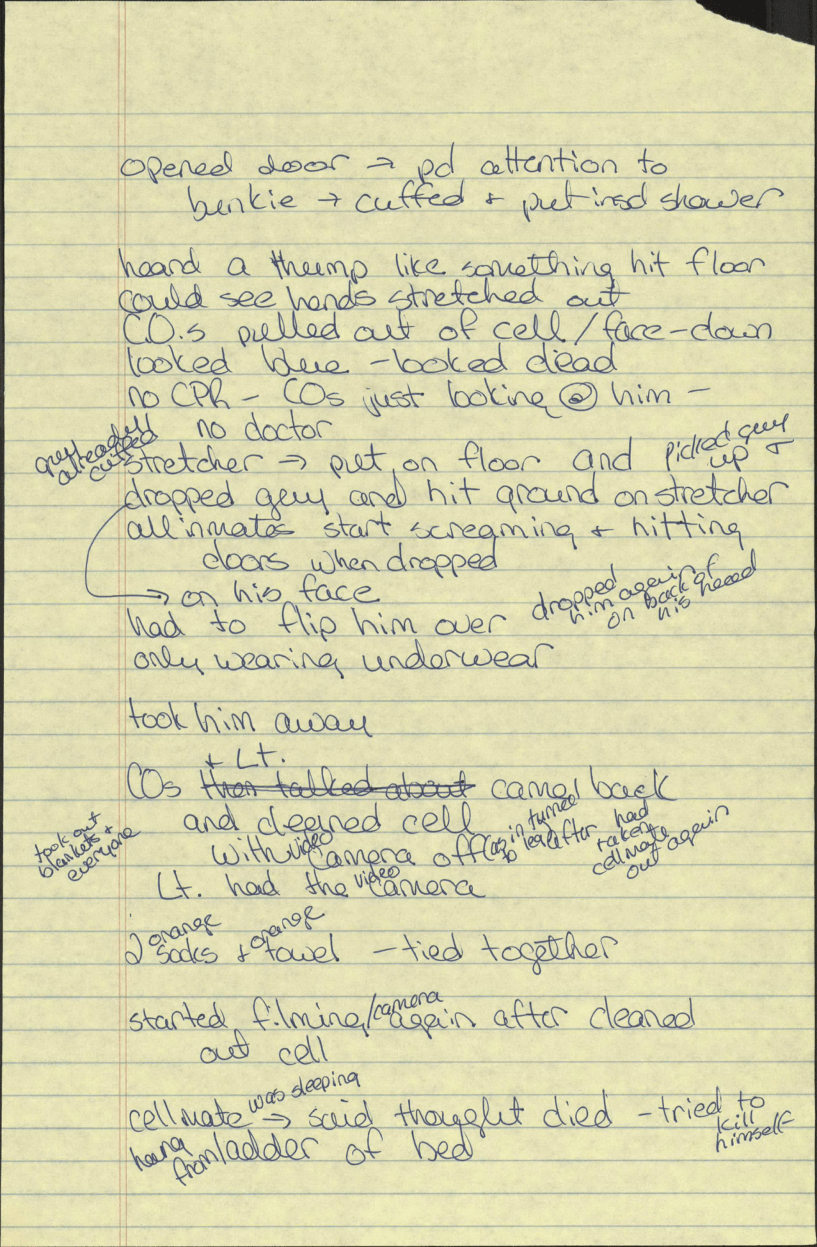 opened door → pd attention to
bunkie → cuffed + put insd shower
heard a thump like something hit floor
could see hands stretched out
C.O.s pulled out of cell / face-down
looked blue - looked dead
no CPR - COs just looking @ him -
no doctor
guy already cuffed
stretcher → put on floor and picked guy up +
dropped guy and hit ground on stretcher
all inmates start screaming + hitting
doors when dropped
→ on his face
dropped him again on back of his head
had to flip him over
only wearing underwear
took him away
+ Lt.
COs then talked about came back
and cleaned cell
took out blankets + everyone
with video camera off (as in turned to leg) after had taken cellmate out again
Lt. had the video camera
2 orange socks + orange towel - tied together
started filming/camera again after cleaned
out cell
cellmate was sleeping → said thought died - tried to kill himself
hang from ladder of bed